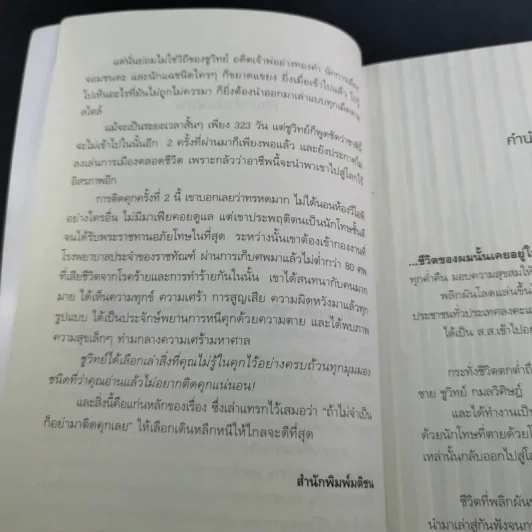 แต่นั่นย่อมไม่ใช่วิถีของชูวิทย์ อดีตเจ้าพ่ออ่างทองคำ นักการเมือง
จอมชนตะ และนักแฉชนิดใครๆ ก็ขยาดแขยง ยิ่งเมื่อเข้าไปแล้ว ไปรู้
ไปเห็นอะไรที่มันไม่ถูกไม่ควรมา ก็ยิ่งต้องนำออกมาเล่าแบบทุกเม็ดตาม
สไตล์
แม้จะเป็นระยะเวลาสั้นๆ เพียง 323 วัน แต่ชูวิทย์ก็พูดชัดว่าชาตินี้
จะไม่เข้าไปในนั้นอีก 2 ครั้งที่ผ่านมาก็เพียงพอแล้ว และยังประกาศไม่
ลงเล่นการเมืองตลอดชีวิต เพราะกลัวว่าอาชีพนี้จะนำพาเขาไปสู่โลกไร้
อิสรภาพอีก
การติดคุกครั้งที่ 2 นี้ เขาบอกเลยว่าทรหดมาก ไม่ได้นอนห้องวีไอพี
อย่างใครอื่น ไม่มีมาเฟียคอยดูแล แต่เขาประพฤติตนเป็นนักโทษชั้นดี
จนได้รับพระราชทานอภัยโทษในที่สุด ระหว่างนั้นเขาต้องเข้ากองงานที่
โรงพยาบาลประจำของราชทัณฑ์ ผ่านการเก็บศพมาแล้วไม่ต่ำกว่า 80 ศพ
ที่เสียชีวิตจากโรคร้ายและการทำร้ายกันในนั้น เขาได้สนทนากับคนมาก
มาย ได้เห็นความทุกข์ ความเศร้า การสูญเสีย ความผิดหวังมาแล้วทุก
รูปแบบ ได้เป็นประจักษ์พยานการหนีคุกด้วยความตาย และได้พบภาพ
ความสุขเล็กๆ ท่ามกลางความเศร้ามหาศาล
ชูวิทย์ได้เลือกเล่าสิ่งที่คุณไม่รู้ในคุกไว้อย่างครบถ้วนทุกมุมมอง
ชนิดที่ว่าคุณอ่านแล้วไม่อยากติดคุกแน่นอน!
และสิ่งนี้คือแก่นหลักของเรื่อง ซึ่งเล่าแทรกไว้เสมอว่า “ถ้าไม่จำเป็น
ก็อย่ามาติดคุกเลย” ให้เลือกเดินหลีกหนีให้ไกลจะดีที่สุด
สำนักพิมพ์มติชน
คำนำ
...ชีวิตของผมนั้นเคยอยู่ใ
ทุกค่ำคืน มอบความสุขสมให้
พลิกผันโลดแล่นขึ้น
ประชาชนทั่วประเทศลงคะแ
ได้เป็น ส.ส.เข้าไปอ
กระทั่งชีวิตตกต่ำถึ
ชาย ชูวิทย์ กมลวิศิษฎ์
และได้ทำงานเป็น
ด้วยนักโทษที่ตายด้วยโ
เหล่านั้นกลับออกไปสู่โ
ชีวิตที่พลิกผัน
นำมาเล่าสู่กันฟังจนก